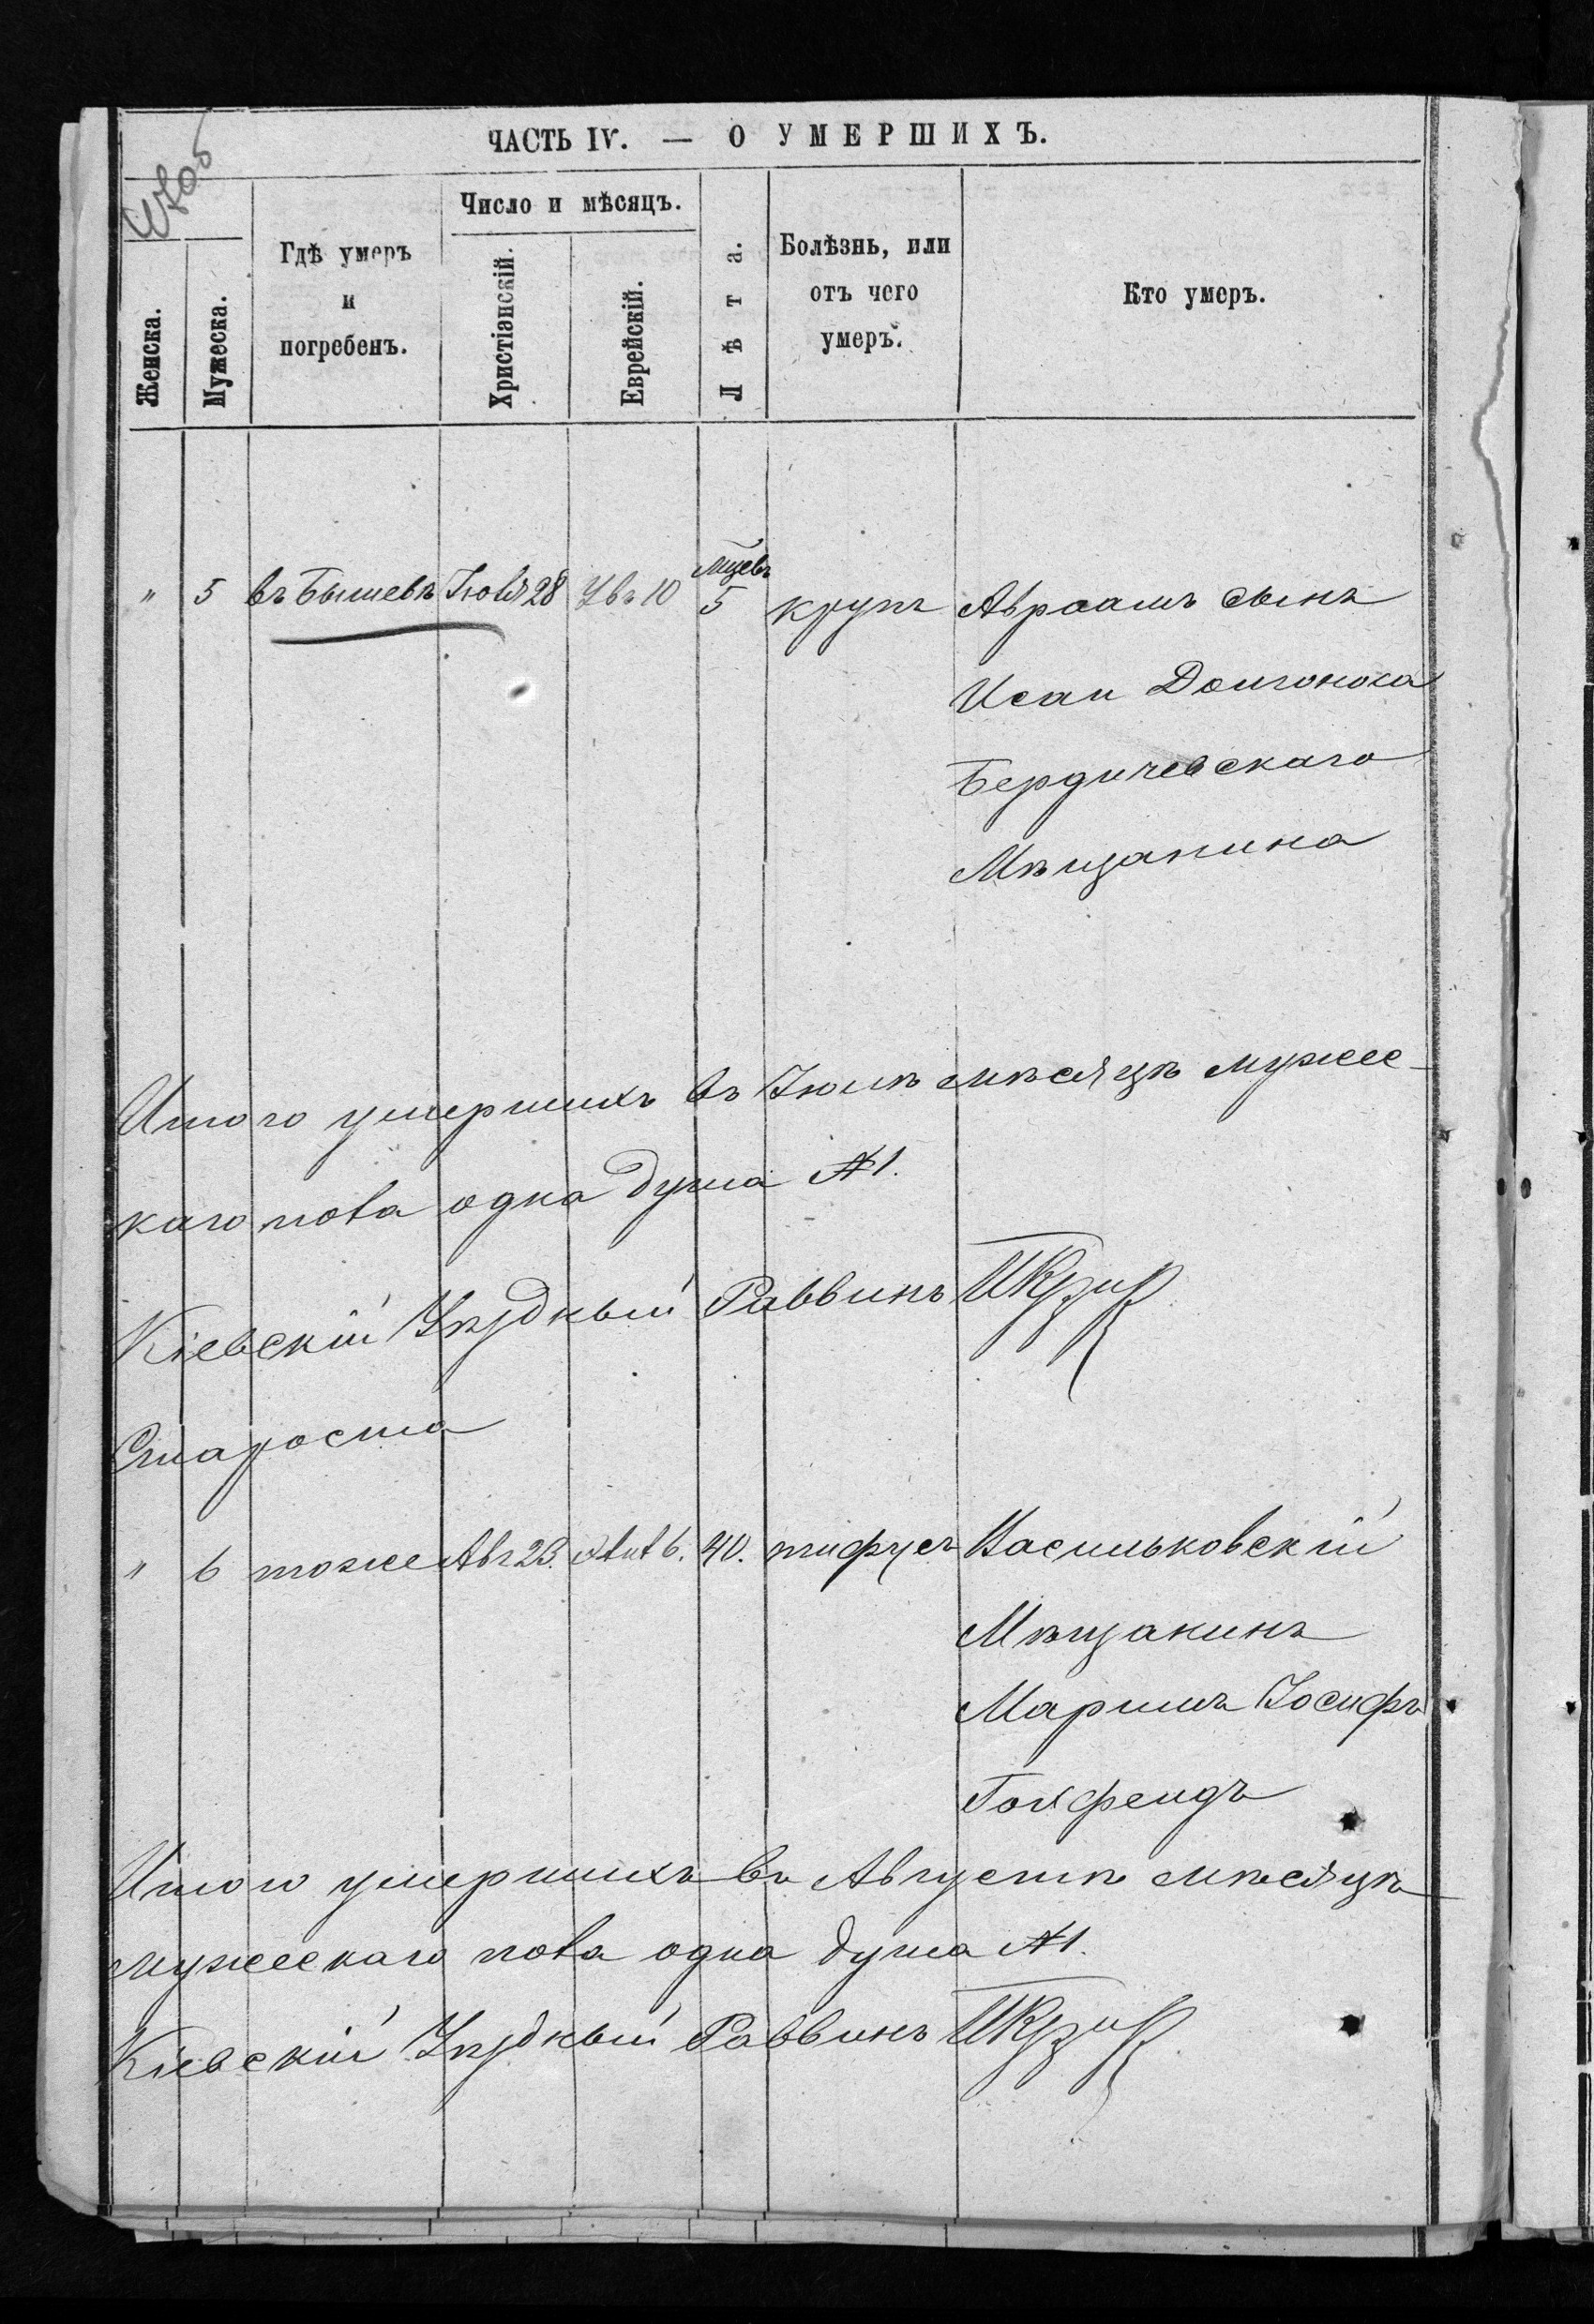 ЧАСТЬ IV. — О УМЕРШИХЪ.
Женска.
Мужеска.
Гдѣ умеръ
и
погребенъ.
Число и мѣсяцъ.
Христіанскій.
Еврейскій.
Лѣта.
Болѣзнь, или
отъ чего
умеръ.
Кто умеръ.
" 5 въ Бышевѣ Іюля 28 10 Мцевъ 5 крупъ Авраамъ сынъ
Исаи Долгоноса
Бердичевскаго
Мѣщанина
Итого умершихъ въ Іюлѣ мѣсяцѣ мужес-
каго пола одна душа №1.
Кіевскій Уѣздный Раввинъ
Староста
" 6 тоже Авг 23. 6. 40. тифусъ Васильковскій
Мѣщанинъ
Маримъ Іосифъ
Голфелдъ
Итого умершихъ въ Августѣ мѣсяцѣ
мужескаго пола одна душа №1.
Кіевскій Уѣздный Раввинъ